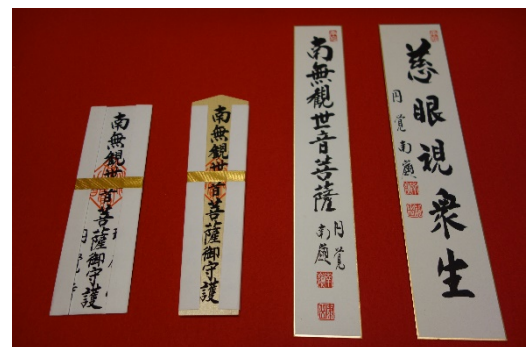 南無観世音菩薩御守護
南無観世音菩薩御守護
南無観世音菩薩
円覚
南嶺
慈眼視衆生
円覚
南嶺